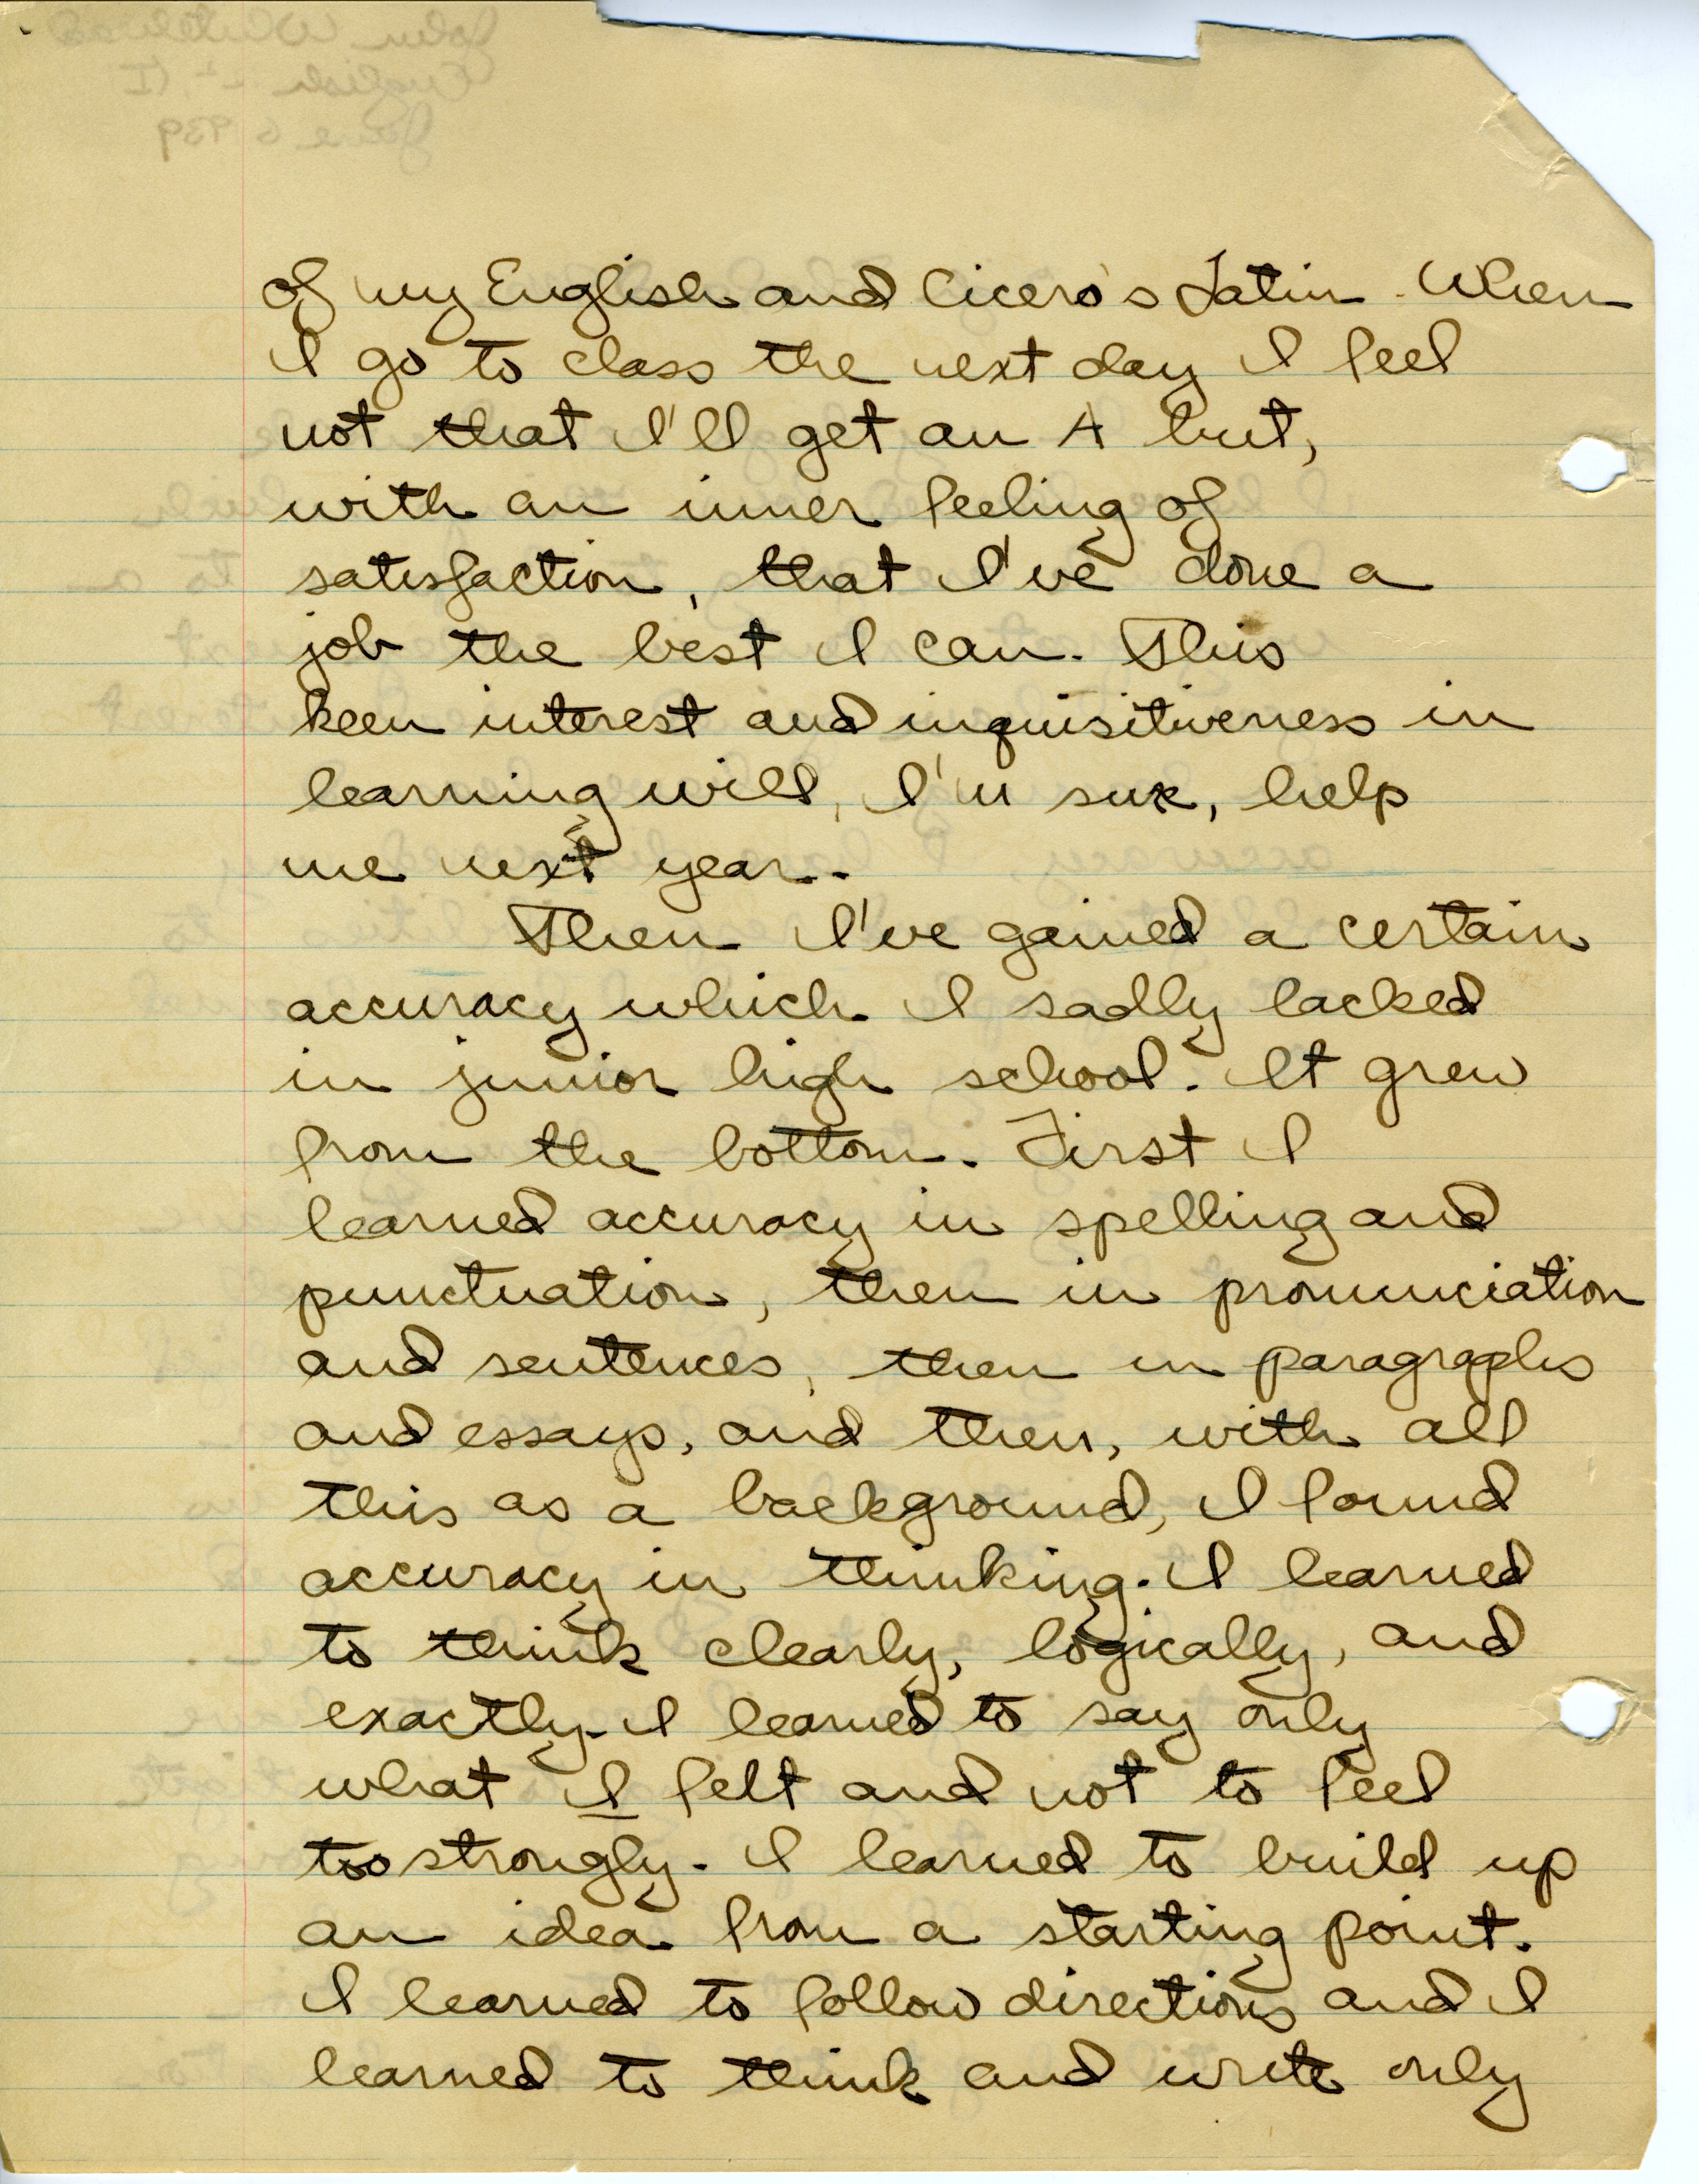 of my English and Cicero's Latin. When
I go to class the next day I feel
not that I'll get an A but,
with an inner feeling of
satisfaction, that I've done a
job the best I can. This
keen interest and inquisitiveness in
learning will, I'm sure, help
me next year.
Then I've gained a certain
accuracy which I sadly lacked
in junior high school. It grew
from the bottom. First I
learned accuracy in spelling and
punctuation, then in pronunciation
and sentences, then in paragraphs
and essays, and then, with all
this as a background, I found
accuracy in thinking. I learned
to think clearly, logically, and
exactly. I learned to say only
what I felt and not to feel
too strongly. I learned to build up
an idea from a starting point.
I learned to follow directions and I
learned to think and write only